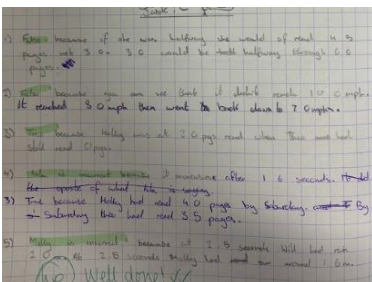 1) False because if she was halfway she would of read 45
pages not 30. 30 would be halfway through 60
pages.
2) because you can see that it didn't reach 100mph.
It reached 80mph then went back down to 70mph.
3) True because Holly was at 20 pgs read when Theo had
still read 0 pgs.
4) is incorrect because it increases after 16 seconds.
the oposite of what is saying.
3) True because Holly had read 40 pages by Saturday. By
Saturday theo had read 35 pages.
5) Milly is incorrect because at 2.5 seconds Will had run
20 At 2.5 seconds Milly had around 1.6m.
Well done!